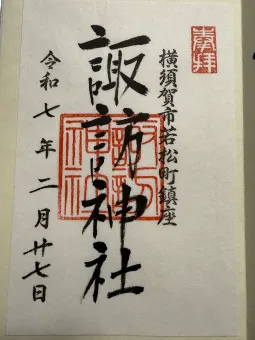 奉拝
横須賀市若松町鎮座
諏訪神社
令和七年二月廿七日